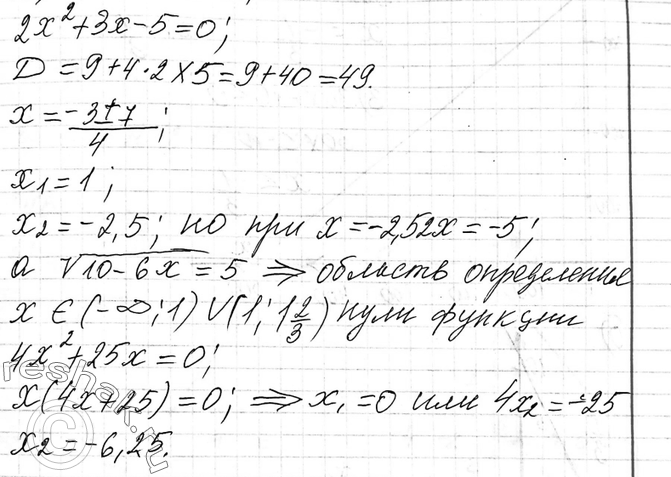 2x²+3x-5=0;
D=9+4·2×5=9+40=49.
x=(-3±7)/4;
x₁=1;
x₂=-2,5; но при x=-2,52x=-5;
а √10-6x=5 ⇒ область определения
x∈(-∞;1)∨(1;1⅔) нули функции
4x²+25x=0;
x(4x+25)=0; ⇒ x₁=0 или 4x₂=-25
x₂=-6,25.
©reshak.ru